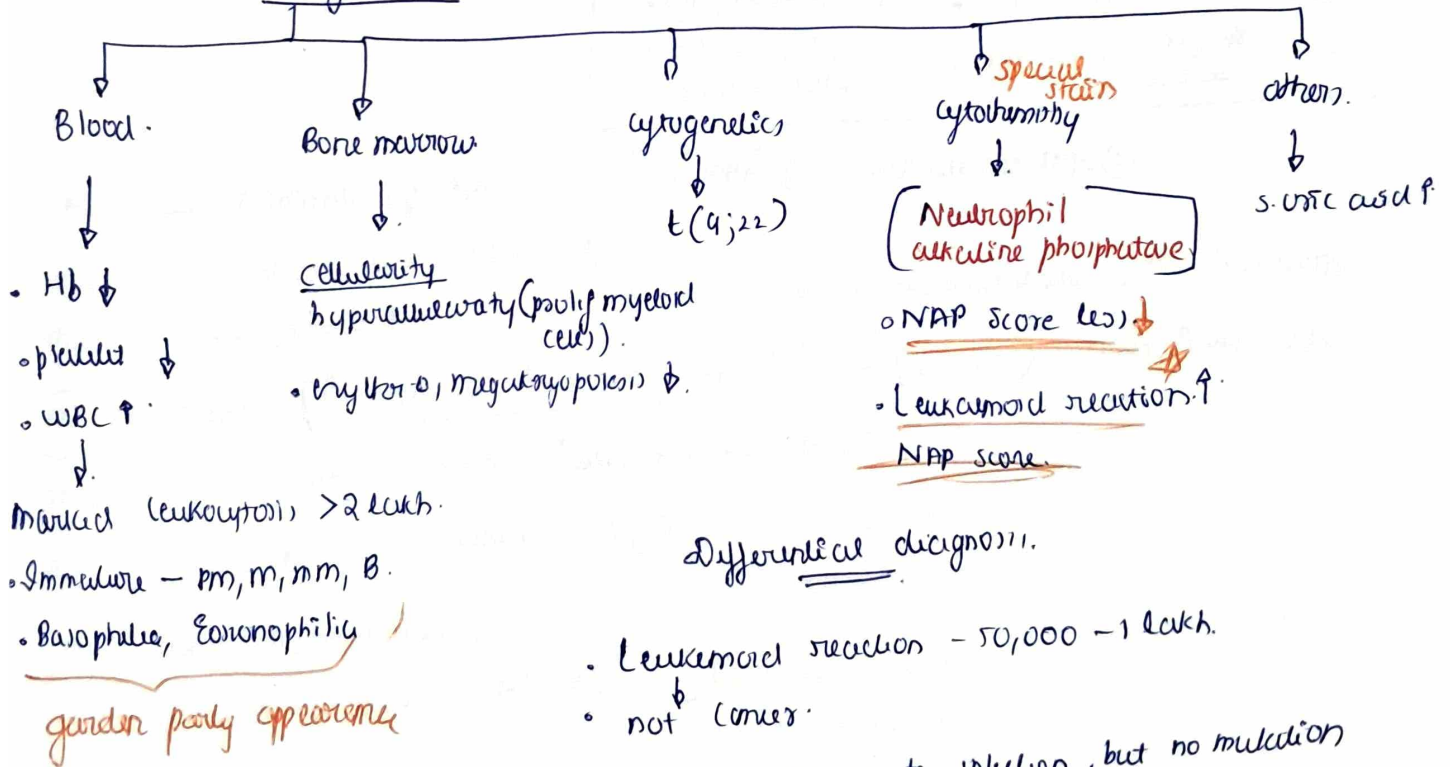 Blood.
Hb ↓
platelet ↓
WBC ↑
Marked leukocytosis >2 lakh.
Immature - pm, m, mm, B.
Basophilia, Eosonophilia
garden party appearence
Bone marrow
cellularity
hypercellularaty (prolif myeloid
cells).
erythro-o, megakaryopoiesis ↓.
cytogenetics
t(9;22)
special
stain
cytochemisty
Neutrophil
alkaline phosphatave
NAP score less ↓
Leukaemoid reaction ↑
NAP score.
others.
s. uric acid ↑
Differential diagnosis.
Leukemoid reaction - 50,000 - 1 lakh.
not cancer.
infection, but no mutation